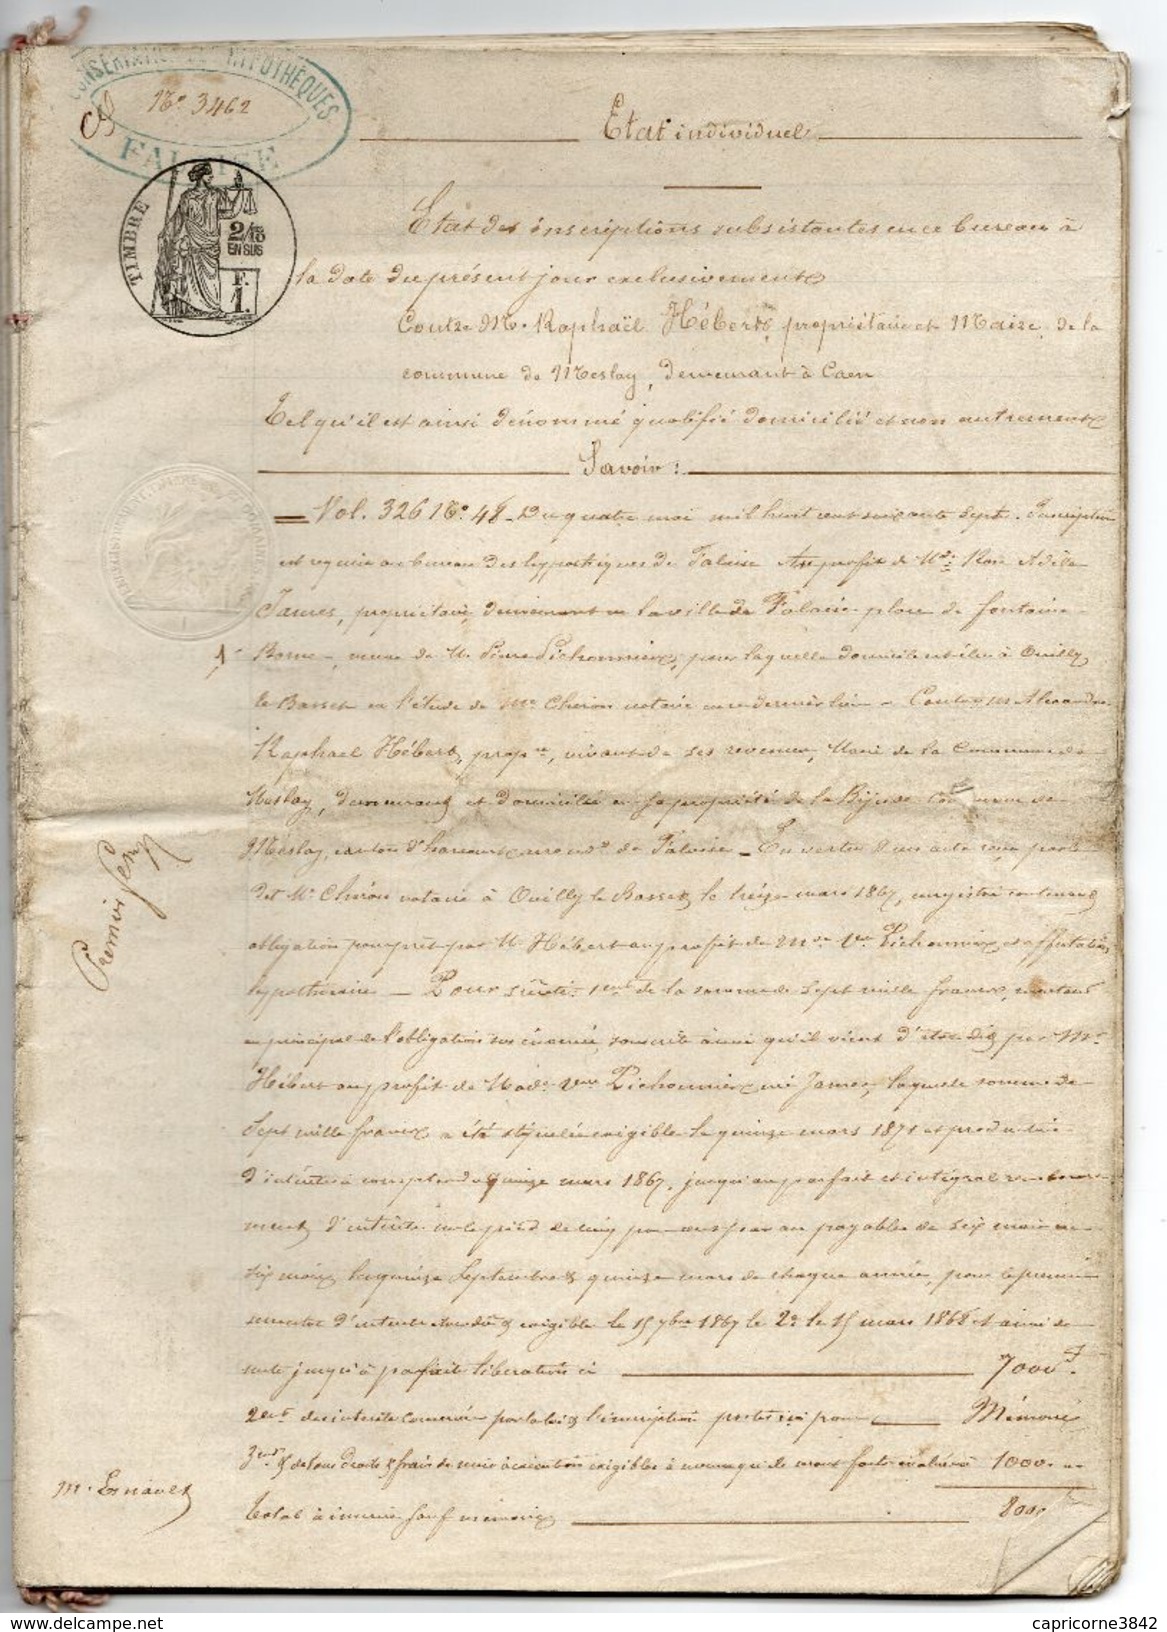 CONSERVATION DES HYPOTHÈQUES
No. 3462
FALAISE
TIMBRE
2/10
EN SUS
F.
1.
Etat individuel
Etat des inscriptions subsistantes en ce bureau à
la date du présent jour exclusivement
Contre Mr. Raphaël Hébert, propriétaire et Maire de la
commune de Meslay, demeurant à Caen
Tel qu'il est ainsi dénommé qualifié domicilié et non autrement
Savoir :
Vol. 326 No. 48 - Du quatre mai mil huit cent soixante sept. Inscription
est requise au bureau des hypothèques de Falaise Au profit de Md. Rose Adèle
James, propriétaire, demeurant en la ville de Falaise place de fontaine
1° Borne, veuve de M. Pierre Pichonnier, pour laquelle domicile est élu à Ouilly
le Basset en l'étude de Me Chéron notaire en ce dernier lieu - Contre Alexandre
Raphael Hébert, propre, vivant de ses revenus, Maire de la Commune de
Meslay, demeurant et domicilié en sa propriété de la Bijude commune de
Meslay, canton d'harcourt, arrondt de Falaise - En vertu d'un acte reçu par le
dit Me Chéron notaire à Ouilly le Basset le treize mars 1867, enregistré contenant
obligation pour prêt par M Hébert au profit de Mme Vve Pichonnier et affectation
hypothécaire - Pour sûreté 1ent de la somme de sept mille francs, montant
en principal de l'obligation sus énoncée, souscrite ainsi qu'il vient d'être dit par Mr
Hébert au profit de Made veuve Pichonnier née James, laquelle somme de
Sept mille francs a été stipulée exigible le quinze mars 1871 et productive
d'intérêts à compter du quinze mars 1867, jusqu'au parfait et intégral rembourse-
ment d'intérêts sur le pied de cinq pour cent par an payables de six mois en
six mois les quinze Septembre & quinze mars de chaque année, pour le premier
semestre d'intérêts être dû & exigible le 15 7bre 1867 le 2e le 15 mars 1868 et ainsi de
suite jusqu'à parfaite libération ci 7000 f.
2ent des intérêts conservés par la loi & l'inscription portés ici pour Mémoire
3ent & de tous droits & frais de mise à exécution exigibles à évalués 1000. "
Total à inscrire sauf mémoire 8000
Premier
M. Esnault
capricorne3842
www.delcampe.net